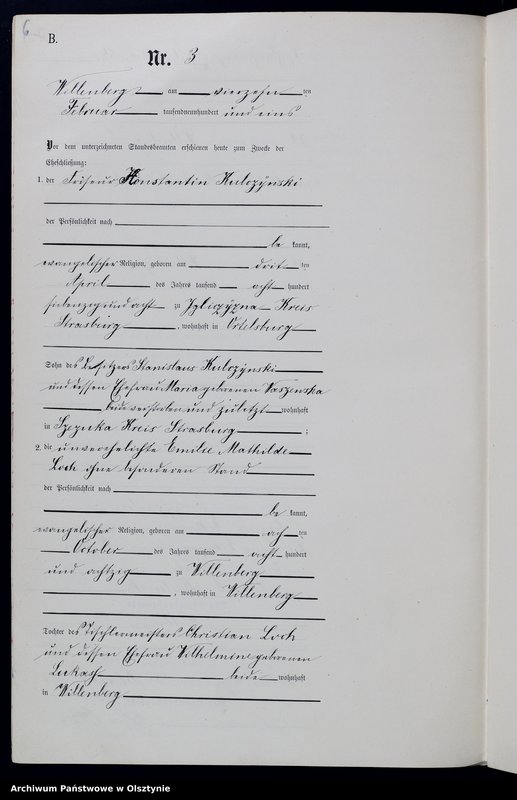 6
B.
Nr. 3
Willenberg am vierzehn ten
Februar tausendneunhundert und eins
Vor dem unterzeichneten Standesbeamten erschienen heute zum Zwecke der
Eheschließung:
1. der Friseur Konstantin Kulczynski
der Persönlichkeit nach
be kannt,
evangelischer Religion, geboren am drit ten
April des Jahres tausend acht hundert
siebenzig und acht zu Kreis
Strasburg, wohnhaft in Ortelsburg
Sohn des Besitzers Stanislaus Kulczynski
und dessen Ehefrau Maria geborenen
beide verstorben und zuletzt wohnhaft
in Szczuka Kreis Strasburg;
2. die unverehelichte Emilie Mathilde
Loch ohne besonderen Stand
der Persönlichkeit nach
be kannt,
evangelischer Religion, geboren am ach ten
October des Jahres tausend acht hundert
und achtzig zu Willenberg
, wohnhaft in Willenberg
Tochter des Tischlermeisters Christian Loch
und dessen Ehefrau Wilhelmine geborenen
beide wohnhaft
in Willenberg
Archiwum Państwowe w Olsztynie